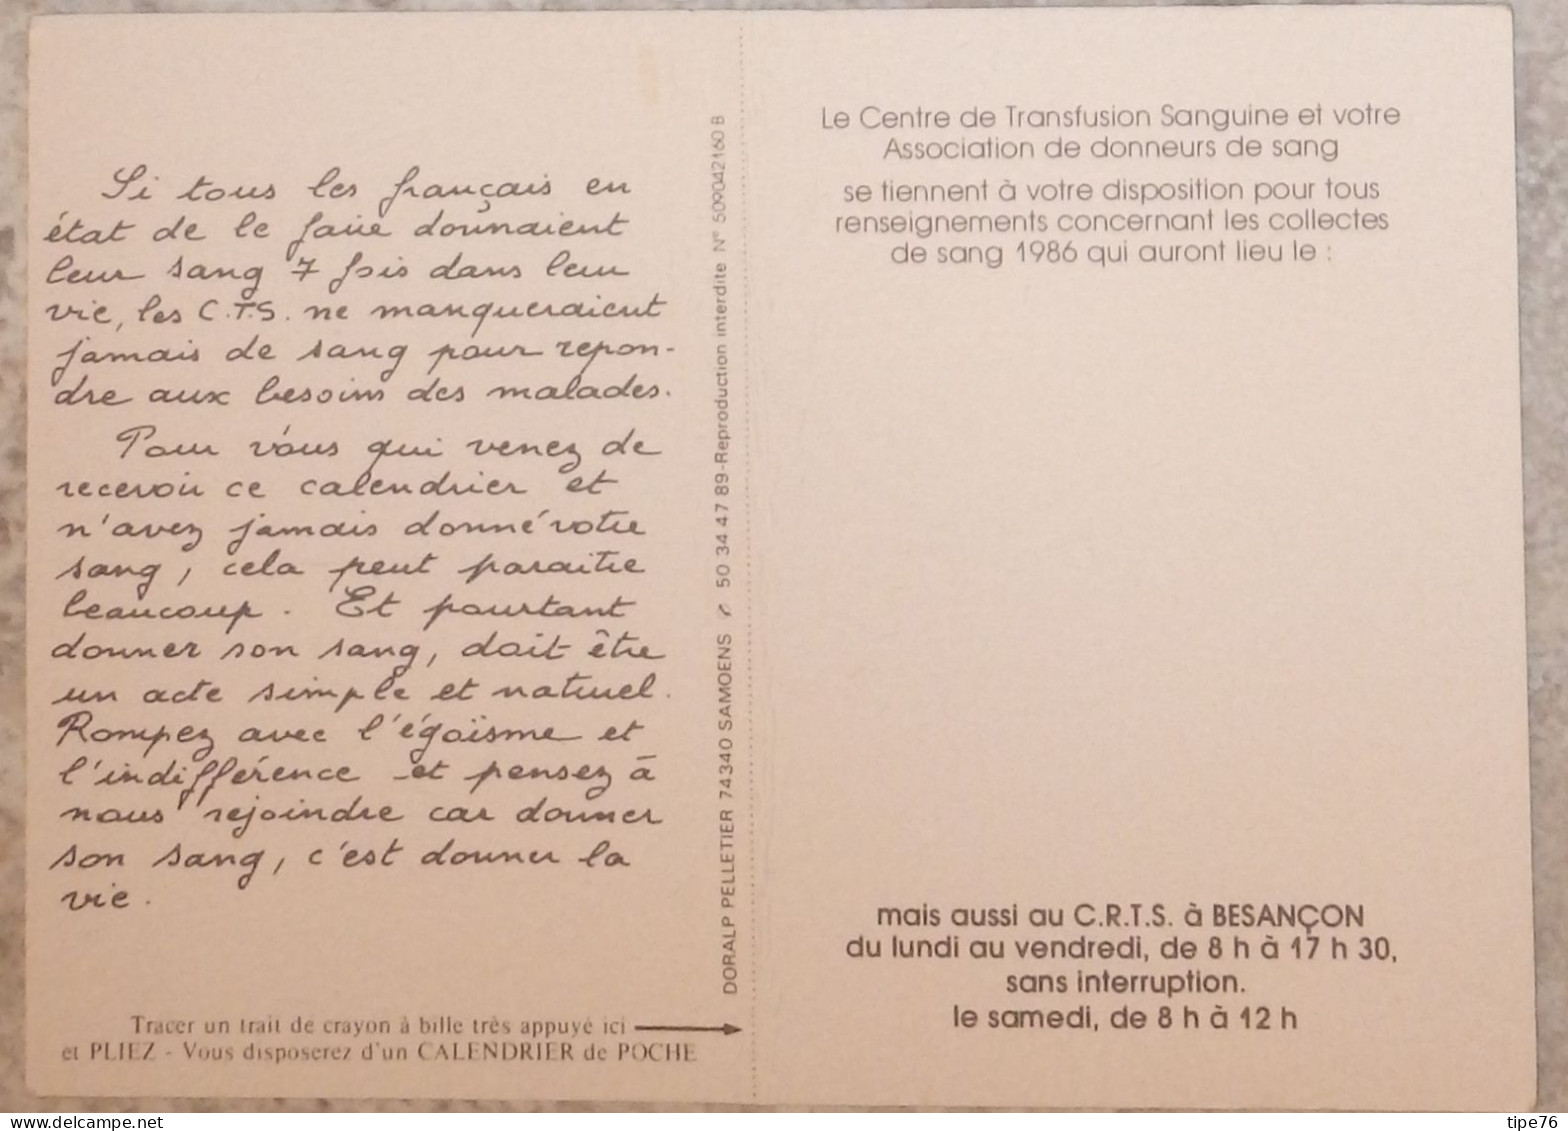 Si tous les français en
état de le faire donnaient
leur sang 7 fois dans leur
vie, les C.T.S. ne manqueraient
jamais de sang pour repon-
dre aux besoins des malades.
Pour vous qui venez de
recevoir ce calendrier et
n'avez jamais donné votre
sang, cela peut paraitre
beaucoup. Et pourtant
donner son sang, doit être
un acte simple et naturel.
Rompez avec l'égoïsme et
l'indifférence et pensez à
nous rejoindre car donner
son sang, c'est donner la
vie.
Tracer un trait de crayon à bille très appuyé ici
et PLIEZ - Vous disposerez d'un CALENDRIER de POCHE
DORALP PELLETIER 74340 SAMOENS 50 34 47 89-Reproduction interdite N° 509042160 B
Le Centre de Transfusion Sanguine et votre
Association de donneurs de sang
se tiennent à votre disposition pour tous
renseignements concernant les collectes
de sang 1986 qui auront lieu le :
mais aussi au C.R.T.S. à BESANÇON
du lundi au vendredi, de 8 h à 17 h 30,
sans interruption.
le samedi, de 8 h à 12 h
delcampe.net
tipe76